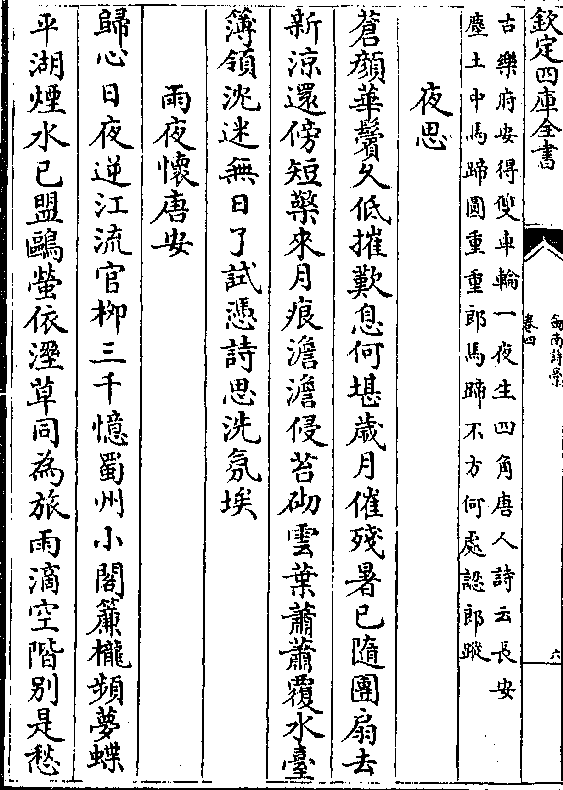 欽定四庫全書
劔南詩槀
卷四
六
古樂府安得雙車輪一夜生四角唐人詩云長安
塵土中馬蹄圓重重郎馬蹄不方何處認郎蹤
夜思
蒼顔華鬢久低摧歎息何堪歲月催殘暑已隨團扇去
新涼還傍短檠來月痕澹澹侵苔砌雲葉蕭蕭覆水臺
簿領沈迷無日了試憑詩思洗氛埃
雨夜懷唐安
歸心日夜逆江流官栁三千憶蜀州小閣簾櫳頻夢蝶
平湖煙水已盟鷗螢依溼草同為旅雨滴空階别是愁